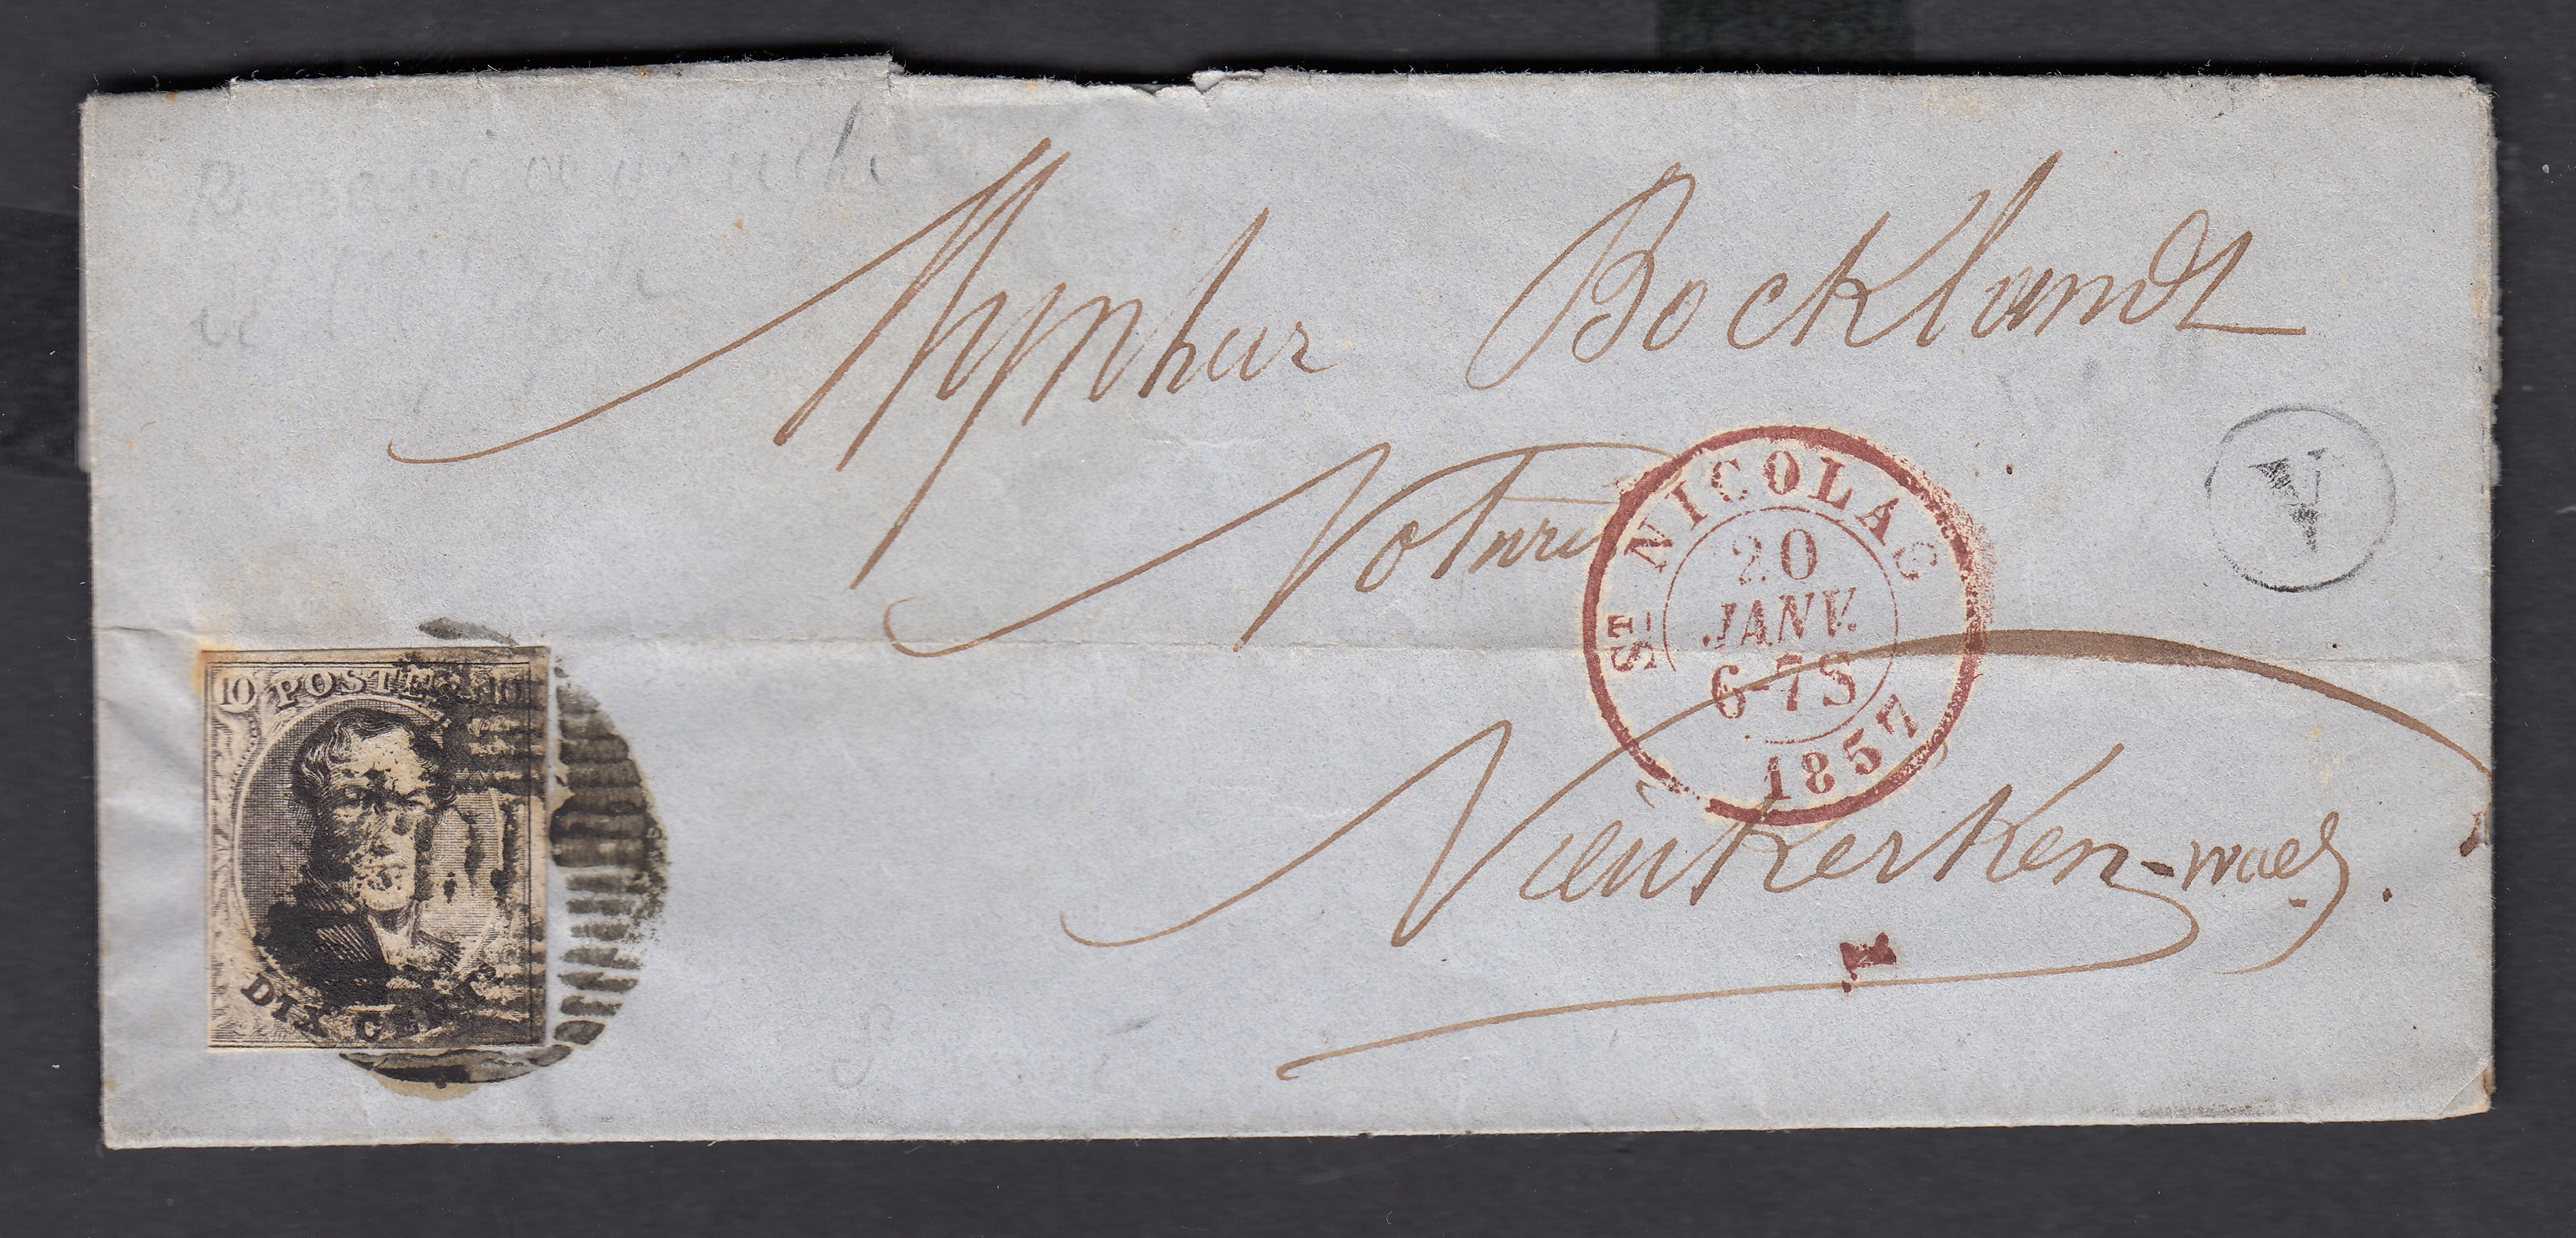 Mynheer Bocklandt
Notaris
ST NICOLAS
20
JANV.
6-7S
1857
V
Nieukerken-waes.
10 POSTES 10
DIX CENT